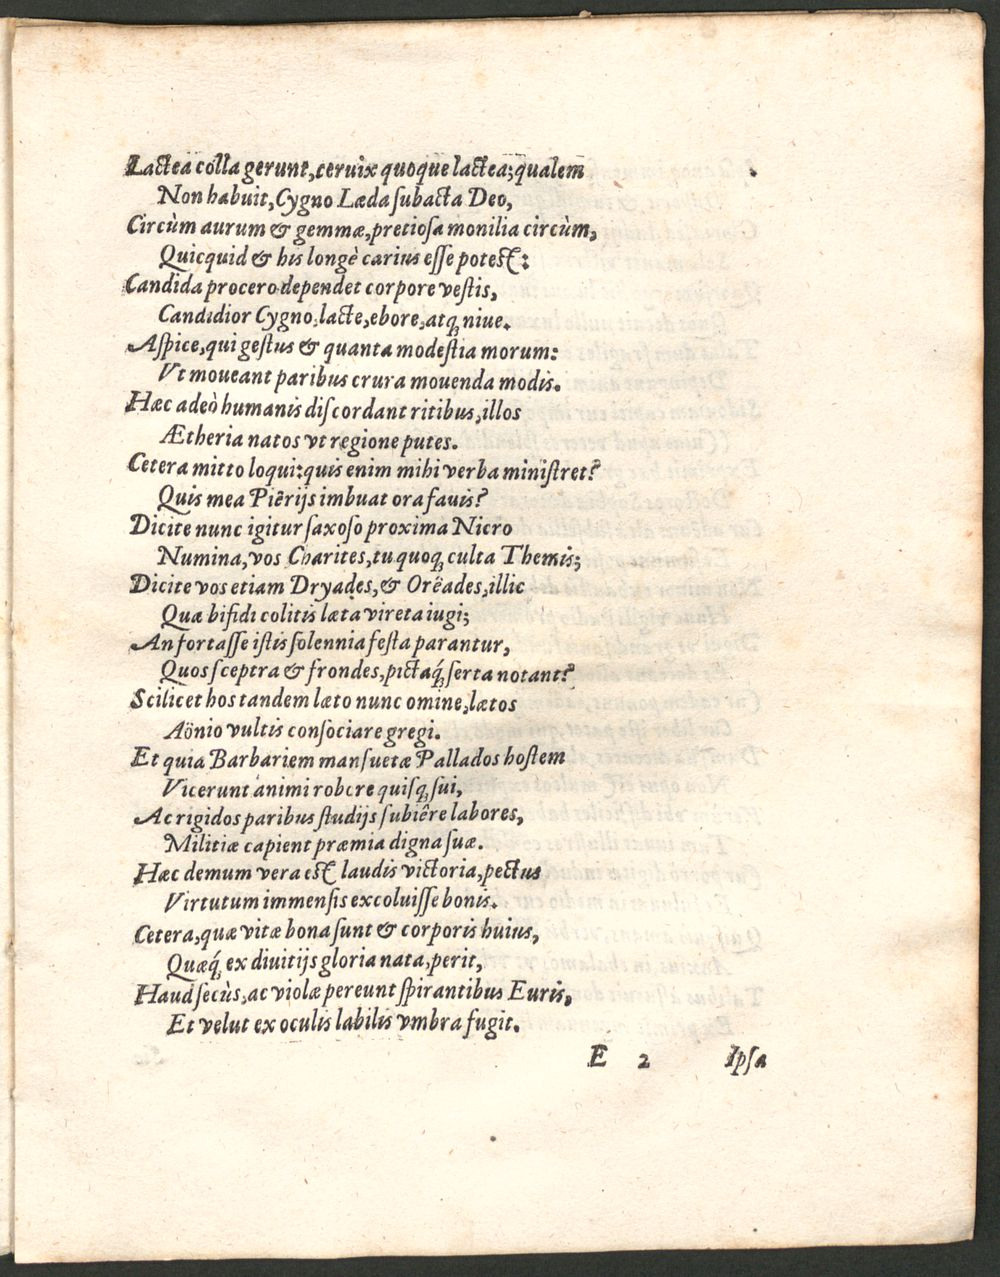 Lactea colla gerunt, ceruix quoque lactea; qualem
Non habuit, Cygno Læda subacta Deo,
Circùm aurum & gemmæ, pretiosa monilia circùm,
Quicquid & his longè carius esse potest:
Candida procero dependet corpore vestis,
Candidior Cygno, lacte, ebore, atq́ niue.
Aspice, qui gestus & quanta modestia morum:
Vt moveant paribus crura mouenda modis.
Hæc adeò humanis discordant ritibus, illos
Ætheria natos vt regione putes.
Cetera mitto loqui: quis enim mihi verba ministret?
Quis mea Piërijs imbuat ora fauis?
Dicite nunc igitur saxoso proxima Nicro
Numina, vos Charites, tu quoq́ culta Themis;
Dicite vos etiam Dryades, & Orëades, illic
Quæ bifidi colitis læta vireta iugi;
An fortasse istis solennia festa parantur,
Quos sceptra & frondes, pictaq́ serta notant?
Scilicet hos tandem læto nunc omine, lætos
Aönio vultis consociare gregi.
Et quia Barbariem mansuetæ Pallados hostem
Vicerunt animi robore quisq́ sui,
Ac rigidos paribus studijs subiêre labores,
Militiæ capient præmia digna suæ.
Hæc demum vera est laudis victoria, pectus
Virtutum immensis excoluisse bonis.
Cetera, quæ vitæ bona sunt & corporis huius,
Quæq́ ex divitijs gloria nata, perit,
Haud secùs, ac violæ pereunt spirantibus Euris,
Et velut ex oculis labilis vmbra fugit.
E 2 Ipsa